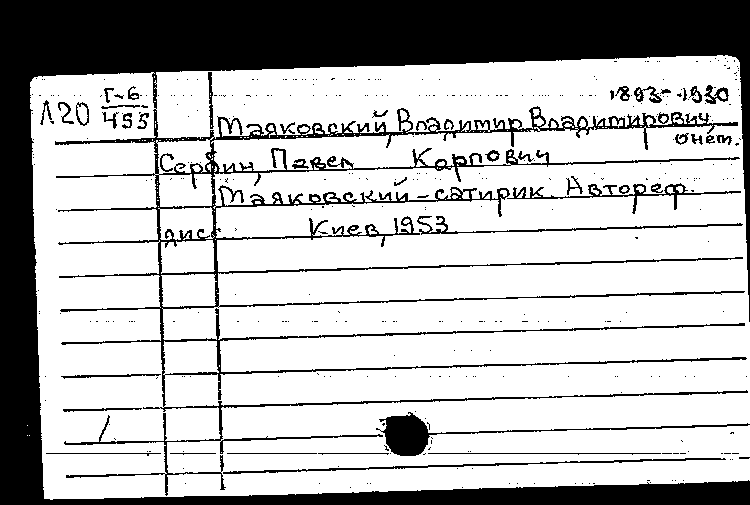 1893-1930
Л20 Г-6
455
Маяковский, Владимир Владимирович
о нём.
Сербин, Павел Карпович
Маяковский-сатирик. Автореф.
дисс. Киев, 1953